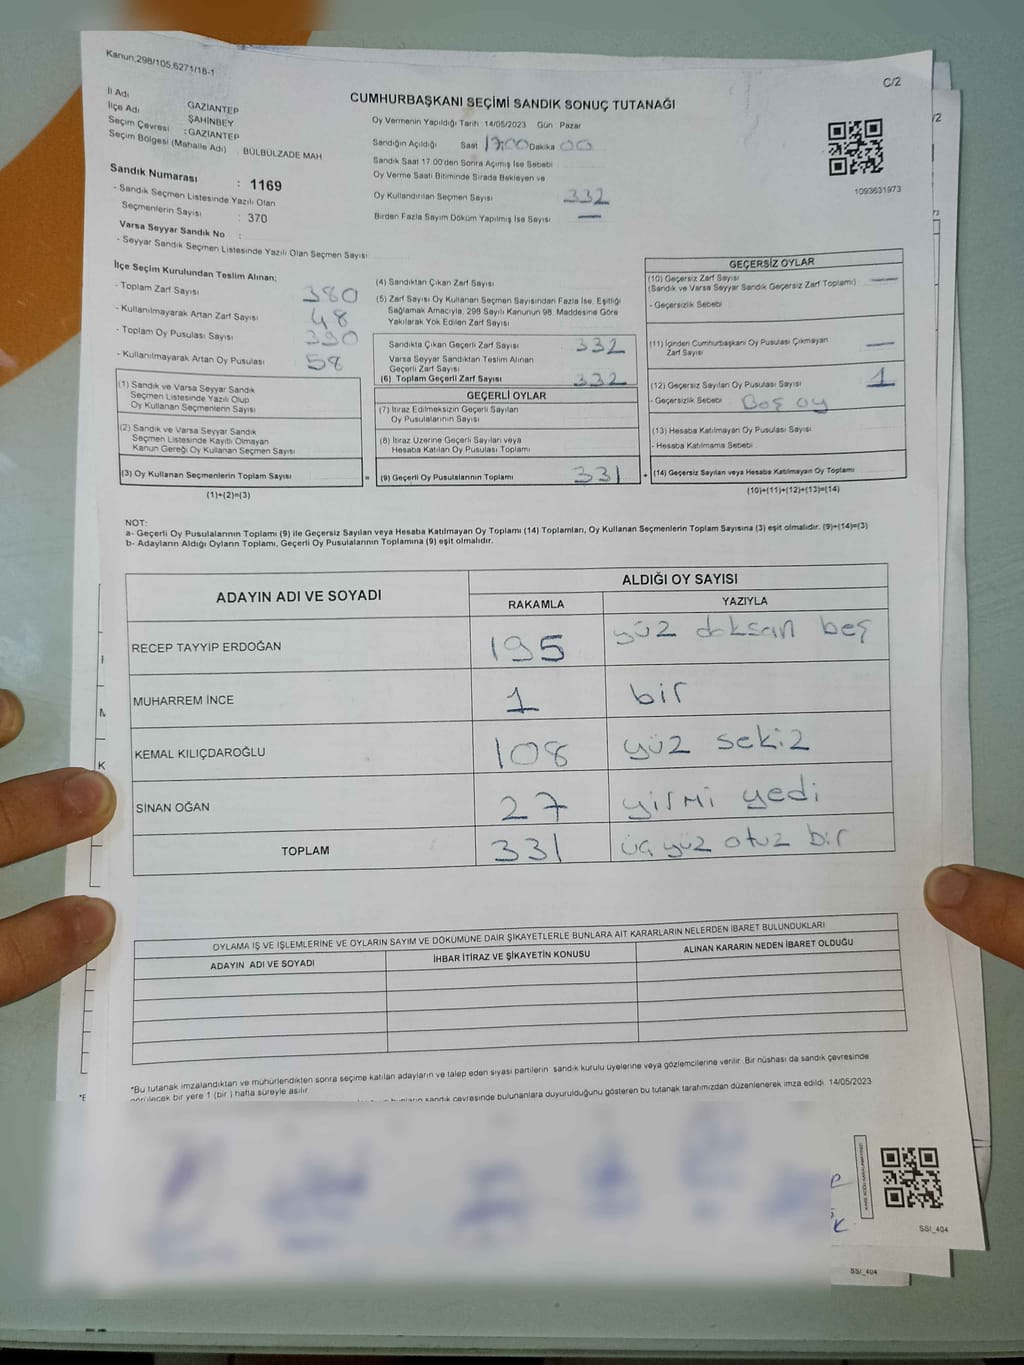 Kanun:298/105,6271/18-1
C/2
CUMHURBAŞKANI SEÇİMİ SANDIK SONUÇ TUTANAĞI
İl Adı GAZİANTEP
İlçe Adı ŞAHİNBEY
Seçim Çevresi : GAZİANTEP
Seçim Bölgesi (Mahalle Adı) BÜLBÜLZADE MAH
Sandık Numarası : 1169
- Sandık Seçmen Listesinde Yazılı Olan
Seçmenlerin Sayısı : 370
Varsa Seyyar Sandık No :
- Seyyar Sandık Seçmen Listesinde Yazılı Olan Seçmen Sayısı
Oy Vermenin Yapıldığı Tarih : 14/05/2023 Gün : Pazar
Sandığın Açıldığı Saat 17:00 Dakika 00
Sandık Saat 17.00'den Sonra Açımış İse Sebebi
Oy Verme Saati Bitiminde Sırada Bekleyen ve
Oy Kullandırılan Seçmen Sayısı 332
Birden Fazla Sayım Döküm Yapılmış İse Sayısı —
1093631973
İlçe Seçim Kurulundan Teslim Alınan;
- Toplam Zarf Sayısı 380
- Kullanılmayarak Artan Zarf Sayısı 48
- Toplam Oy Pusulası Sayısı 390
- Kullanılmayarak Artan Oy Pusulası 58
(1) Sandık ve Varsa Seyyar Sandık
Seçmen Listesinde Yazılı Olup
Oy Kullanan Seçmenlerin Sayısı
(2) Sandık ve Varsa Seyyar Sandık
Seçmen Listesinde Kayıtlı Olmayan
Kanun Gereği Oy Kullanan Seçmen Sayısı
(3) Oy Kullanan Seçmenlerin Toplam Sayısı
(1)+(2)=(3)
(4) Sandıktan Çıkan Zarf Sayısı
(5) Zarf Sayısı Oy Kullanan Seçmen Sayısından Fazla İse, Eşitliği
Sağlamak Amacıyla, 298 Sayılı Kanunun 98. Maddesine Göre
Yakılarak Yok Edilen Zarf Sayısı
Sandıkta Çıkan Geçerli Zarf Sayısı 332
Varsa Seyyar Sandıktan Teslim Alınan
Geçerli Zarf Sayısı
(6) Toplam Geçerli Zarf Sayısı 332
GEÇERLİ OYLAR
(7) İtiraz Edilmeksizin Geçerli Sayılan
Oy Pusulalarının Sayısı
(8) İtiraz Üzerine Geçerli Sayılan veya
Hesaba Katılan Oy Pusulası Toplamı
= (9) Geçerli Oy Pusulalarının Toplamı 331
GEÇERSİZ OYLAR
(10) Geçersiz Zarf Sayısı —
(Sandık ve Varsa Seyyar Sandık Geçersiz Zarf Toplamı)
- Geçersizlik Sebebi
(11) İçinden Cumhurbaşkanı Oy Pusulası Çıkmayan
Zarf Sayısı —
(12) Geçersiz Sayılan Oy Pusulası Sayısı 1
- Geçersizlik Sebebi Boş oy
(13) Hesaba Katılmayan Oy Pusulası Sayısı
- Hesaba Katılmama Sebebi
+ (14) Geçersiz Sayılan veya Hesaba Katılmayan Oy Toplamı
(10)+(11)+(12)+(13)=(14)
NOT:
a- Geçerli Oy Pusulalarının Toplamı (9) ile Geçersiz Sayılan veya Hesaba Katılmayan Oy Toplamı (14) Toplamları, Oy Kullanan Seçmenlerin Toplam Sayısına (3) eşit olmalıdır. (9)+(14)=(3)
b- Adayların Aldığı Oyların Toplamı, Geçerli Oy Pusulalarının Toplamına (9) eşit olmalıdır.
ADAYIN ADI VE SOYADI ALDIĞI OY SAYISI
RAKAMLA YAZIYLA
RECEP TAYYİP ERDOĞAN 195 yüz doksan beş
MUHARREM İNCE 1 bir
KEMAL KILIÇDAROĞLU 108 yüz sekiz
SİNAN OĞAN 27 yirmi yedi
TOPLAM 331 üç yüz otuz bir
OYLAMA İŞ VE İŞLEMLERİNE VE OYLARIN SAYIM VE DÖKÜMÜNE DAİR ŞİKAYETLERLE BUNLARA AİT KARARLARIN NELERDEN İBARET BULUNDUKLARI
ADAYIN ADI VE SOYADI İHBAR İTİRAZ VE ŞİKAYETİN KONUSU ALINAN KARARIN NEDEN İBARET OLDUĞU
*Bu tutanak imzalandıktan ve mühürlendikten sonra seçime katılan adayların ve talep eden siyasi partilerin sandık kurulu üyelerine veya gözlemcilerine verilir. Bir nüshası da sandık çevresinde
görülecek bir yere 1 (bir ) hafta süreyle asılır.
bunların sandık çevresinde bulunanlara duyurulduğunu gösteren bu tutanak tarafımızdan düzenlenerek imza edildi. 14/05/2023
SSI_404
SSI_404